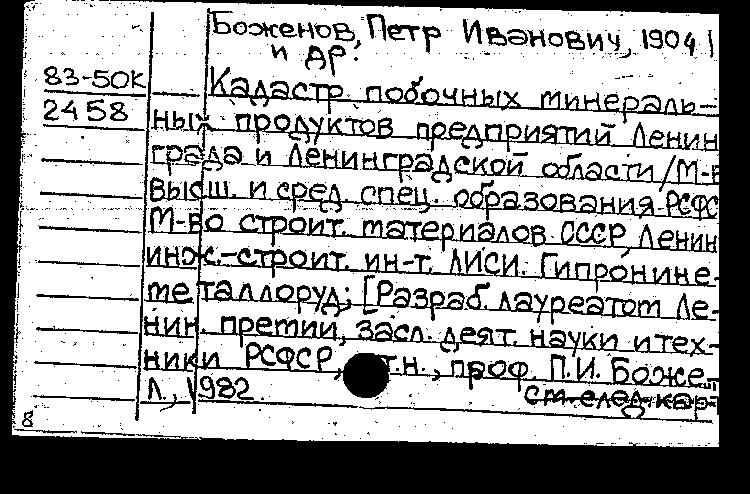 Боженов, Петр Иванович, 1904
и др.
83-50К Кадастр побочных минераль-
2458 ных продуктов предприятий Ленин
града и Ленинградской области /М-в
высш. и сред. спец. образования РСФС
М-во строит. материалов СССР, Ленин
инж.-строит. ин-т. ЛИСИ. Гипронине-
металлоруд; [Разраб. лауреатом Ле-
нин. премии, засл. деят. науки и тех-
ники РСФСР, т.н., проф. П.И. Боже
Л., 1982 см. след. кар-
8